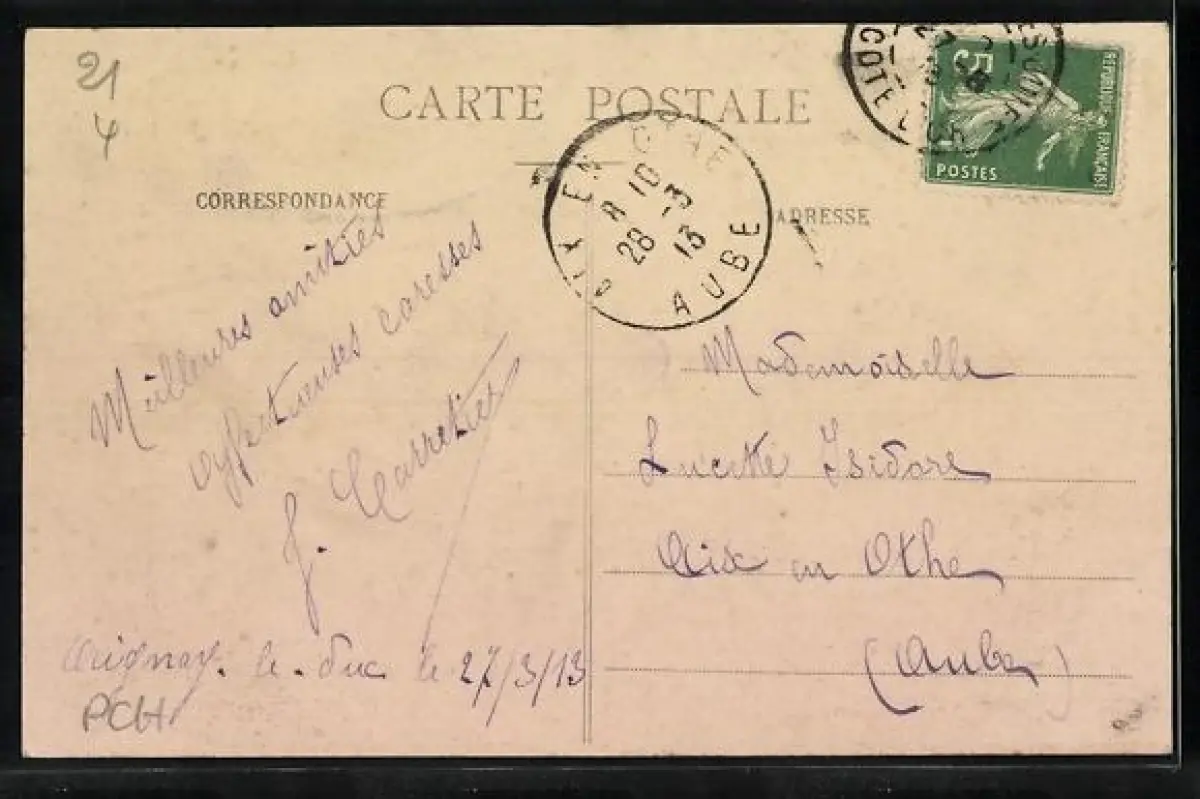 21
4
CARTE POSTALE
CORRESPONDANCE
ADRESSE
5
REPUBLIQUE FRANÇAISE
POSTES
COTE
EN OTHE
8 10
28 -3
13
AUBE
Meilleures amitiés
affectueuses caresses
J. Carretier
le duc le 27/3/13
PCH
Mademoiselle
Lucette Isidore
Aix en Othe
(Aube)